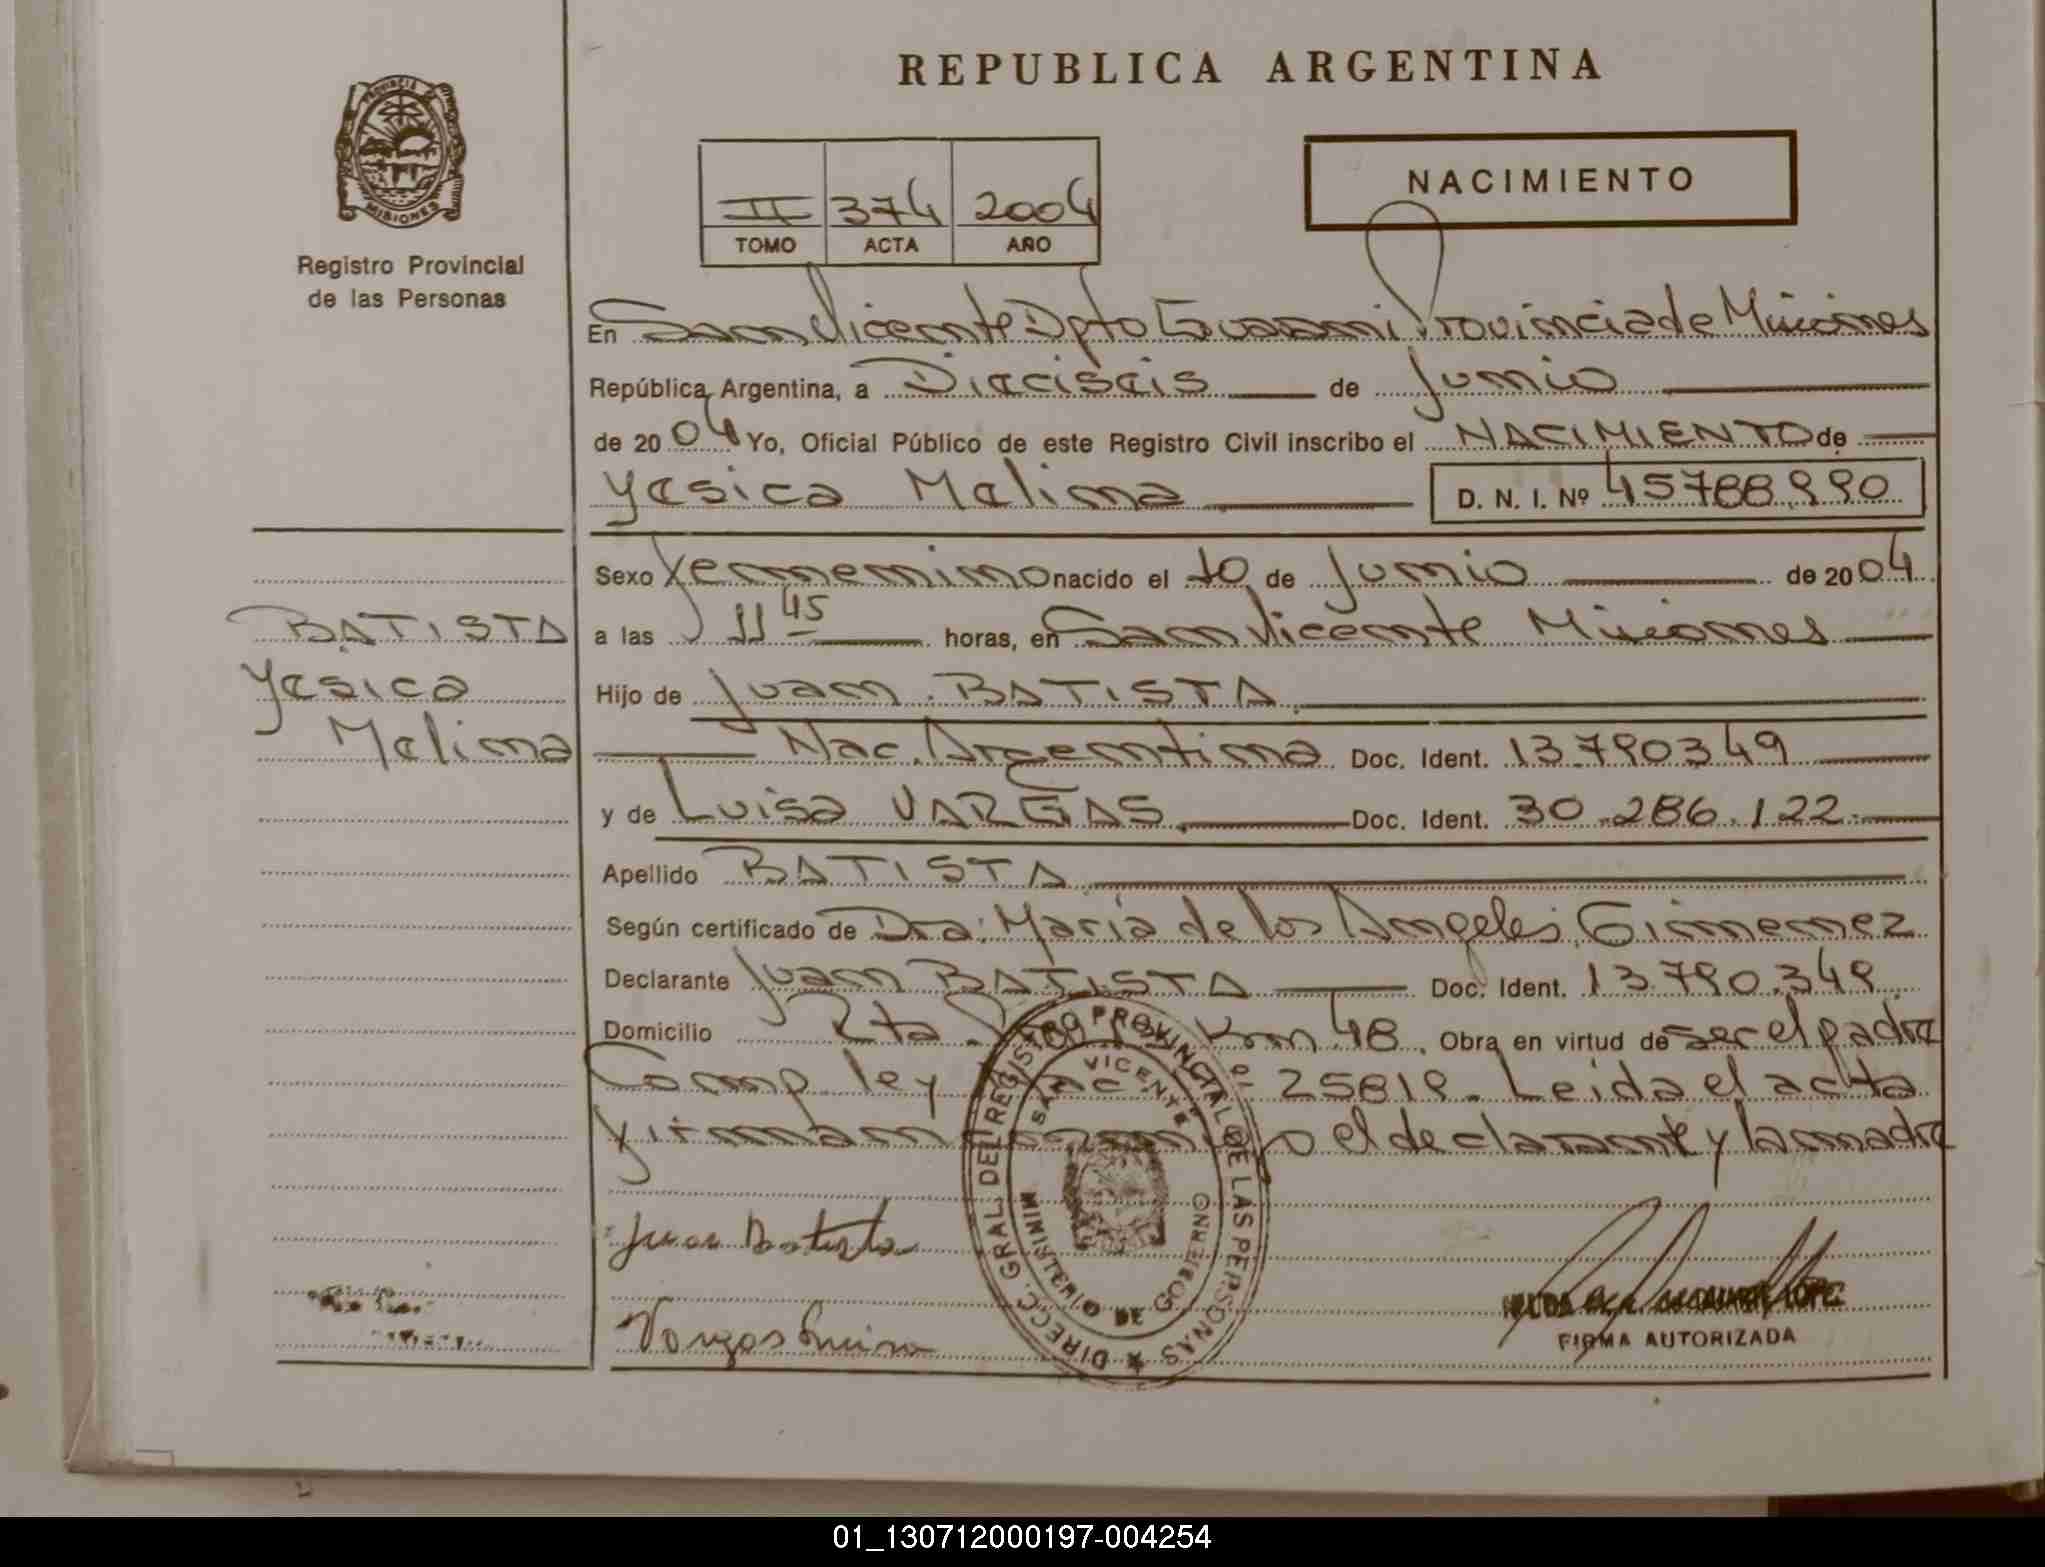 REPUBLICA ARGENTINA
PROVINCIA
MISIONES
Registro Provincial
de las Personas
II 374 2004
TOMO ACTA AÑO
NACIMIENTO
En San Vicente Dpto Guarani Provincia de Misiones
República Argentina, a Dieciseis de Junio
de 2004 Yo, Oficial Público de este Registro Civil inscribo el NACIMIENTO de
Yesica Melina D. N. I. Nº 45788.990
Sexo Femenino nacido el 10 de Junio de 2004
a las 11 45 horas, en San Vicente Misiones
Hijo de Juan BATISTA
Nac. Argentina Doc. Ident. 13.790349
y de Luisa VARGAS Doc. Ident. 30.286.122
Apellido BATISTA
Según certificado de Dra: Maria de los Angeles Gimenez
Declarante Juan BATISTA Doc. Ident. 13.790.349
Domicilio Rta Km 48. Obra en virtud de ser el padre
Comp ley 25819. Leida el acta
firman el declarante y la madre
BATISTA
Yesica
Melina
DIRECC. GRAL. DEL REGISTRO PROVINCIAL DE LAS PERSONAS
SAN VICENTE
MINISTERIO DE GOBIERNO
Juan Batista
Vargas Luisa
LOPEZ
FIRMA AUTORIZADA
01_130712000197-004254